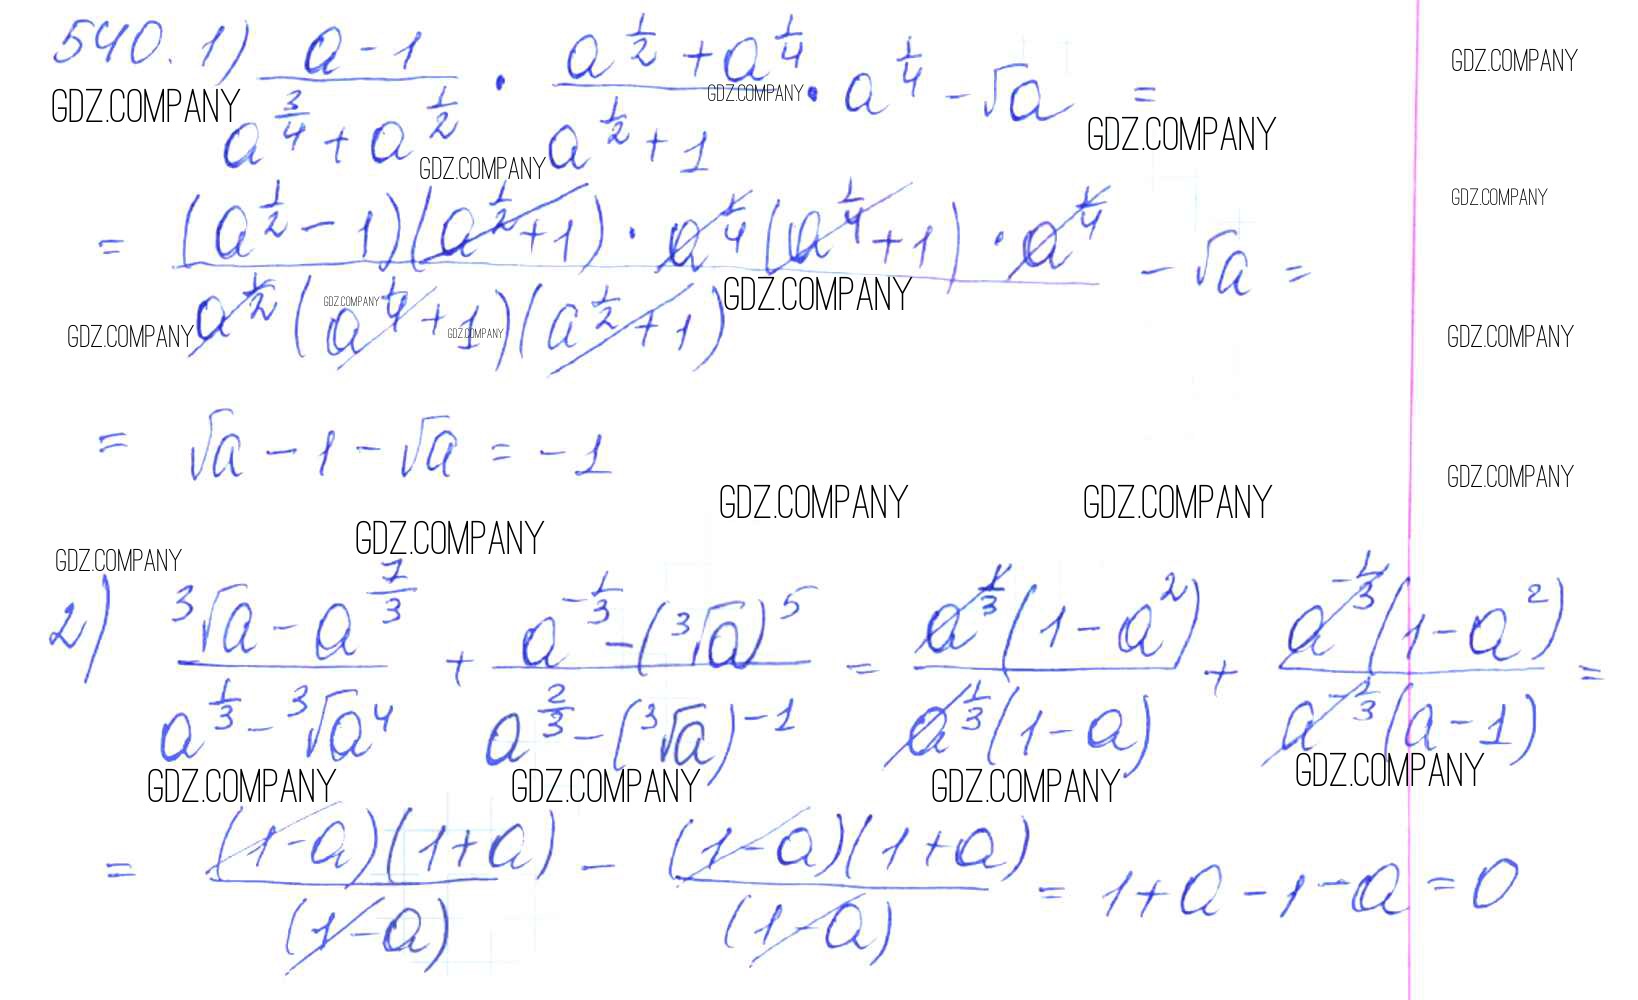 540. 1) \frac{a-1}{a^{\frac{3}{4}}+a^{\frac{1}{2}}} \cdot \frac{a^{\frac{1}{2}}+a^{\frac{1}{4}}}{a^{\frac{1}{2}}+1} \cdot a^{\frac{1}{4}} - \sqrt{a} =
GDZ.COMPANY GDZ.COMPANY GDZ.COMPANY GDZ.COMPANY GDZ.COMPANY
= \frac{(a^{\frac{1}{2}}-1)(a^{\frac{1}{2}}+1) \cdot a^{\frac{1}{4}}(a^{\frac{1}{4}}+1) \cdot a^{\frac{1}{4}}}{a^{\frac{1}{2}}(a^{\frac{1}{4}}+1)(a^{\frac{1}{2}}+1)} - \sqrt{a} =
GDZ.COMPANY GDZ.COMPANY GDZ.COMPANY GDZ.COMPANY GDZ.COMPANY GDZ.COMPANY
= \sqrt{a} - 1 - \sqrt{a} = -1
GDZ.COMPANY GDZ.COMPANY GDZ.COMPANY
GDZ.COMPANY GDZ.COMPANY
2) \frac{\sqrt[3]{a}-a^{\frac{7}{3}}}{a^{\frac{1}{3}}-\sqrt[3]{a^4}} + \frac{a^{-\frac{1}{3}}-(\sqrt[3]{a})^5}{a^{\frac{2}{3}}-(\sqrt[3]{a})^{-1}} = \frac{a^{\frac{1}{3}}(1-a^2)}{a^{\frac{1}{3}}(1-a)} + \frac{a^{-\frac{1}{3}}(1-a^2)}{a^{-\frac{1}{3}}(a-1)} =
GDZ.COMPANY GDZ.COMPANY GDZ.COMPANY GDZ.COMPANY
= \frac{(1-a)(1+a)}{(1-a)} - \frac{(1-a)(1+a)}{(1-a)} = 1+a-1-a = 0